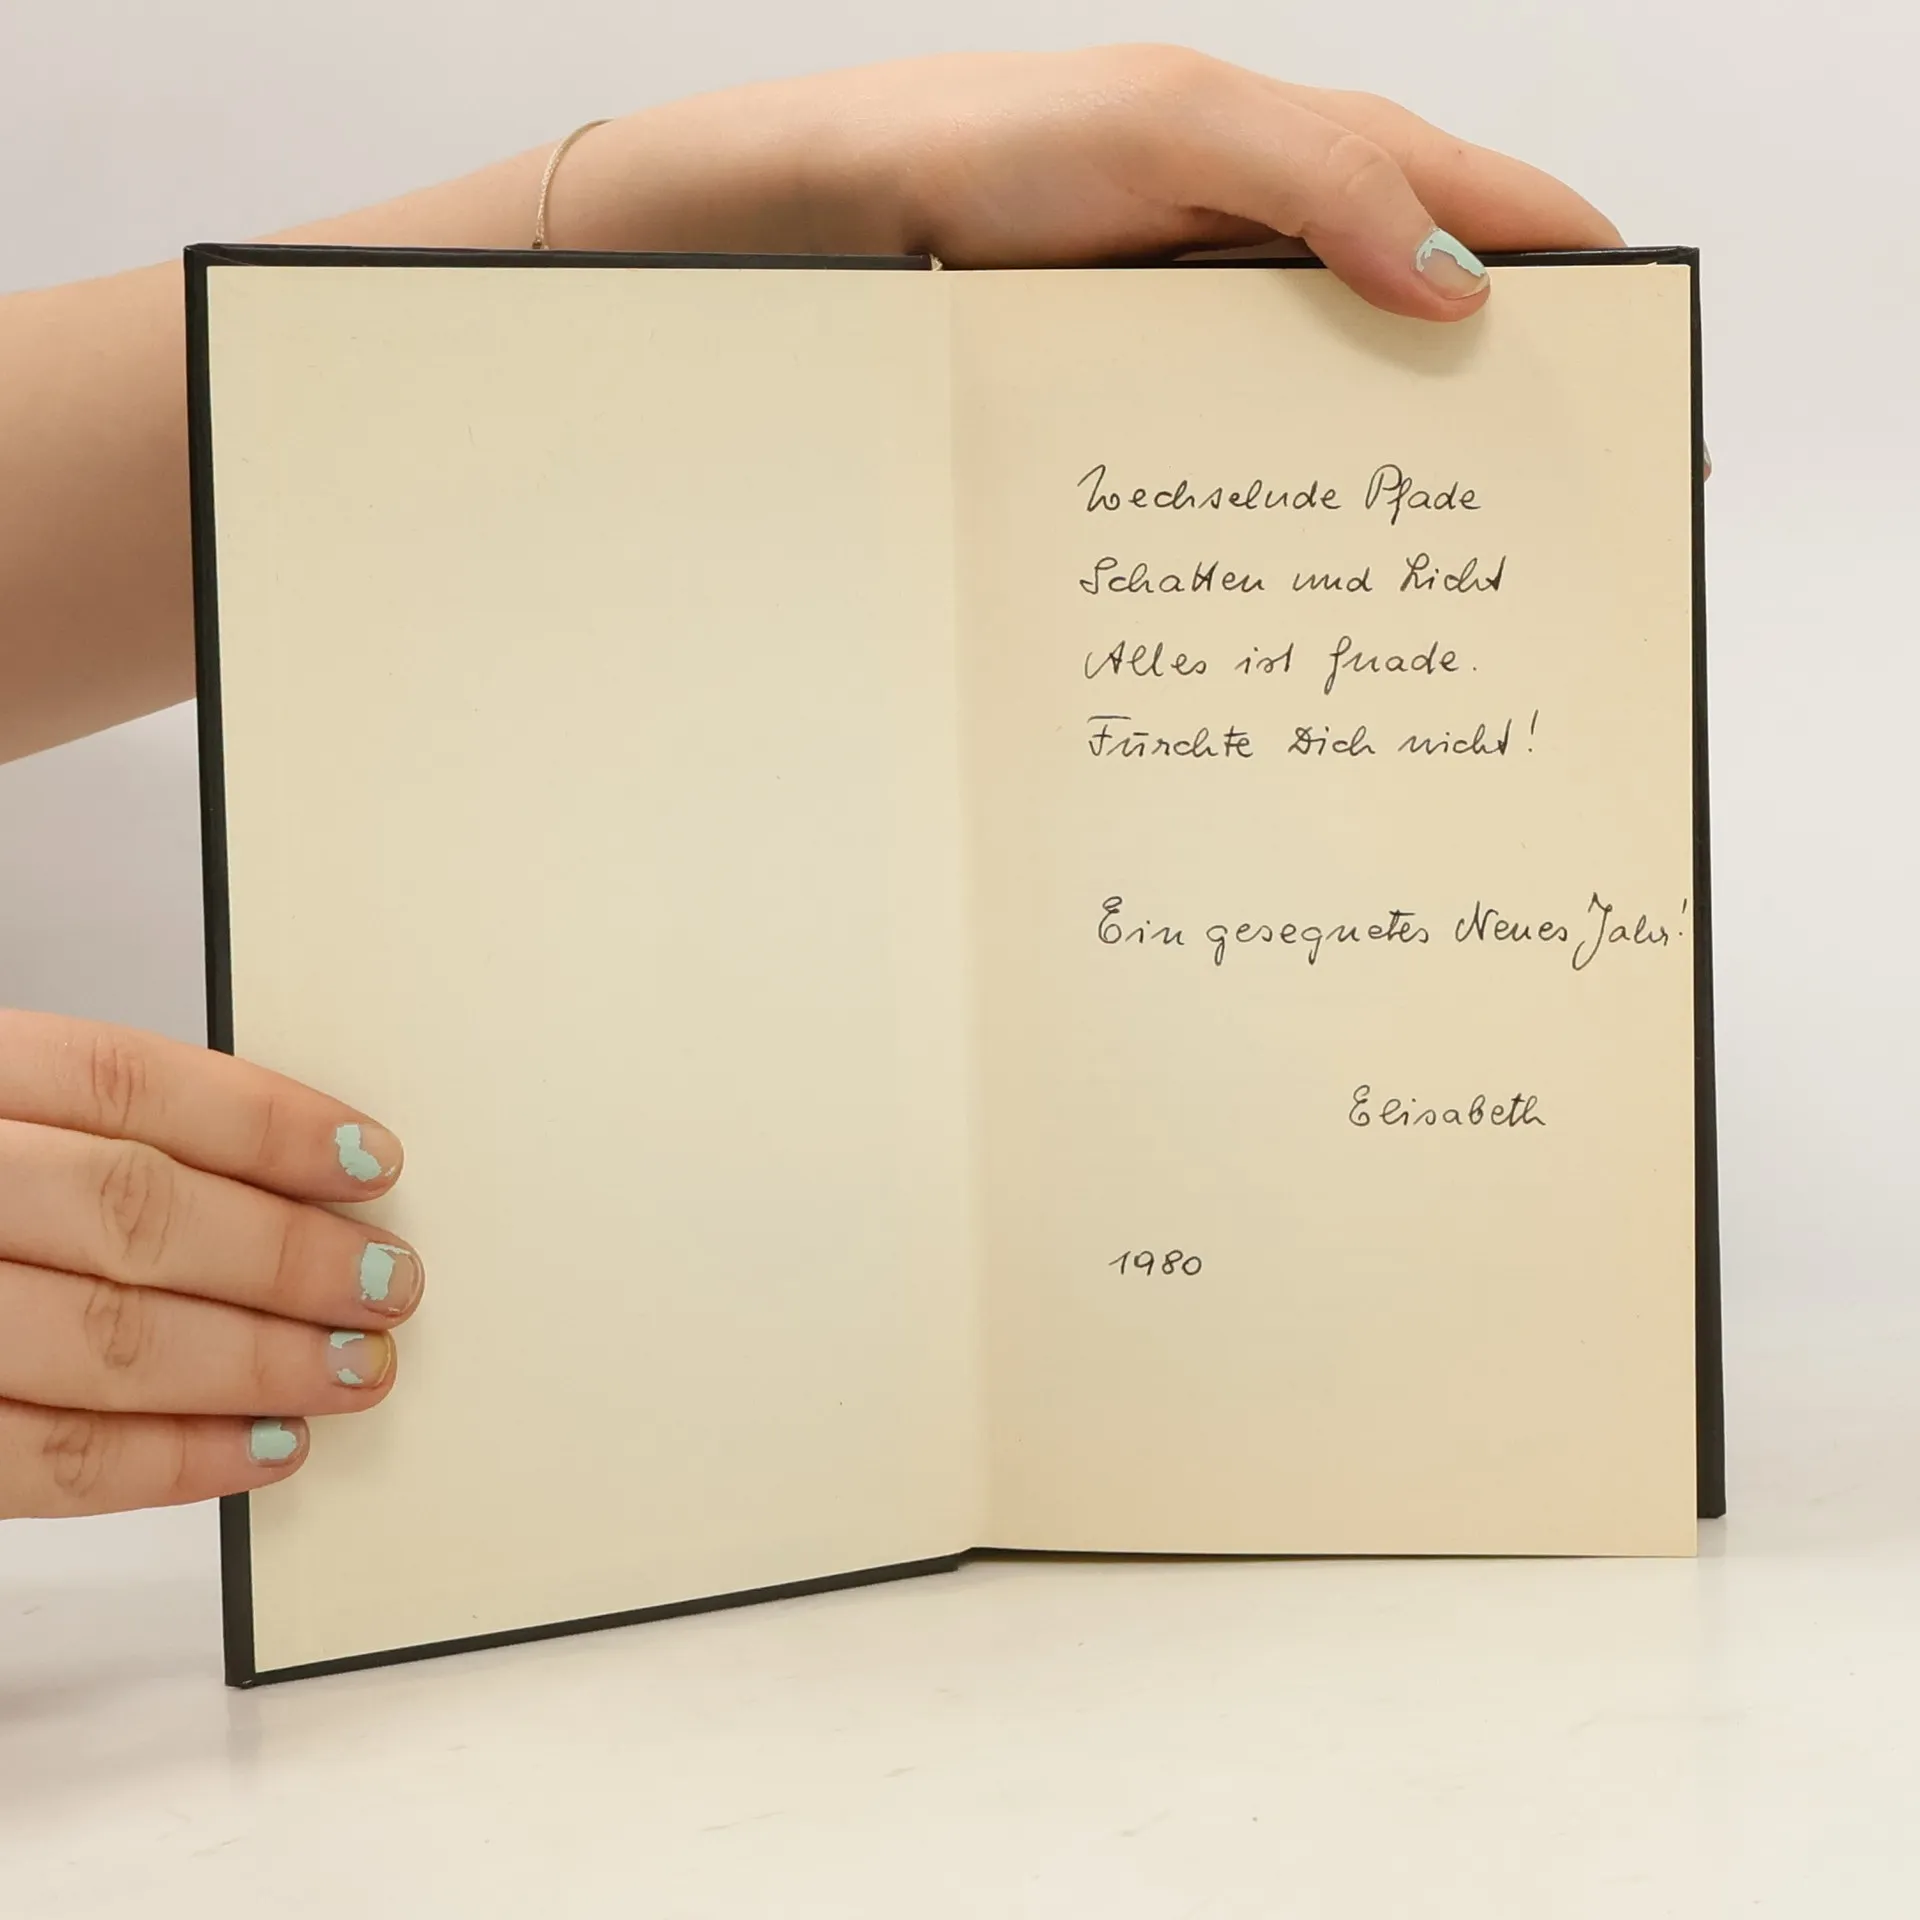 Wechselnde Pfade
Schatten und Licht
Alles ist Gnade.
Fürchte Dich nicht!
Ein gesegnetes Neues Jahr!
Elisabeth
1980